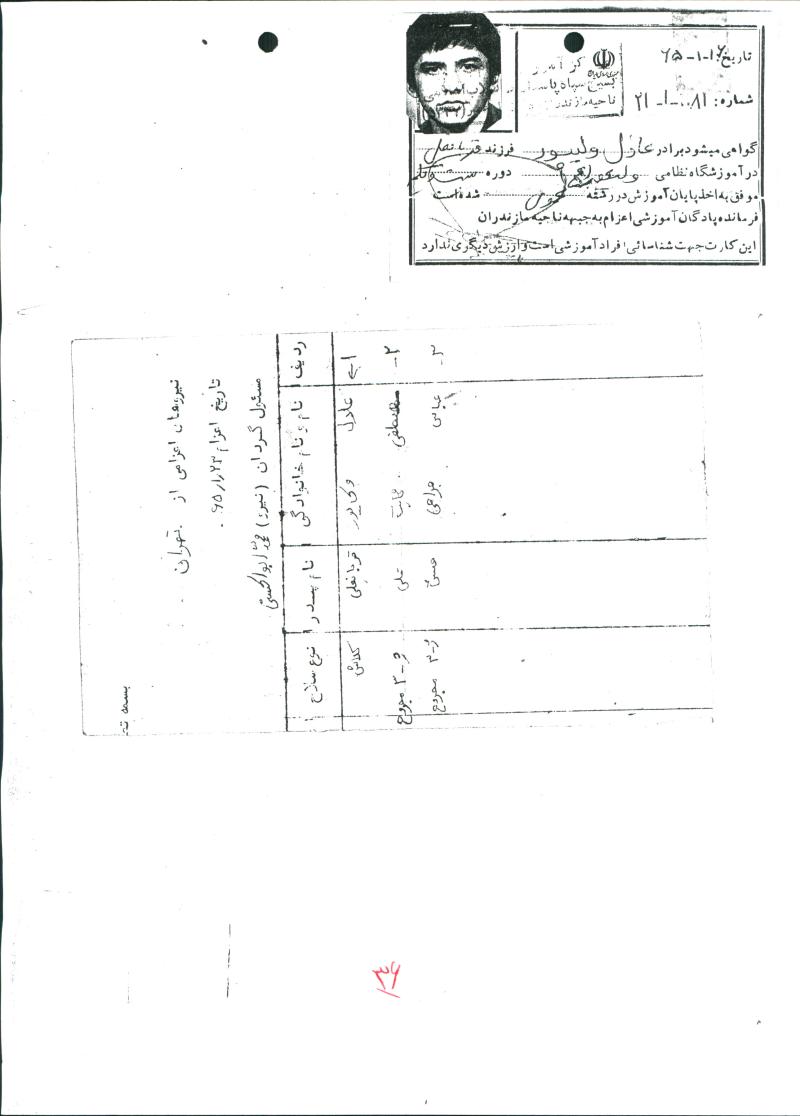 تاریخ: ۱۶-۱-۶۵
شماره: ۲۱-۱-۰۰۸۱
بسیج سپاه پاسداران انقلاب اسلامی
ناحیه مازندران
گواهی میشود برادر عادل ولیپور فرزند قربانعلی
در آموزشگاه نظامی ولیعصر دوره
موفق به اخذ پایان آموزش در رشته شده است
فرمانده پادگان آموزشی اعزام به جبهه ناحیه مازندران
این کارت جهت شناسائی افراد آموزشی است و ارزش دیگری ندارد
بسمه تع
نیروهای اعزامی از تهران
تاریخ اعزام ۶۵
مسئول گردان (نیرو)
ردیف نام و نام خانوادگی نام پدر نوع سلاح
۱- عادل ولی پور قربانعلی کلاش
۲- مصطفی علی ژ-۳ مجروح
۳- عباس جراحی حسن ژ-۳ مجروح
۳۶